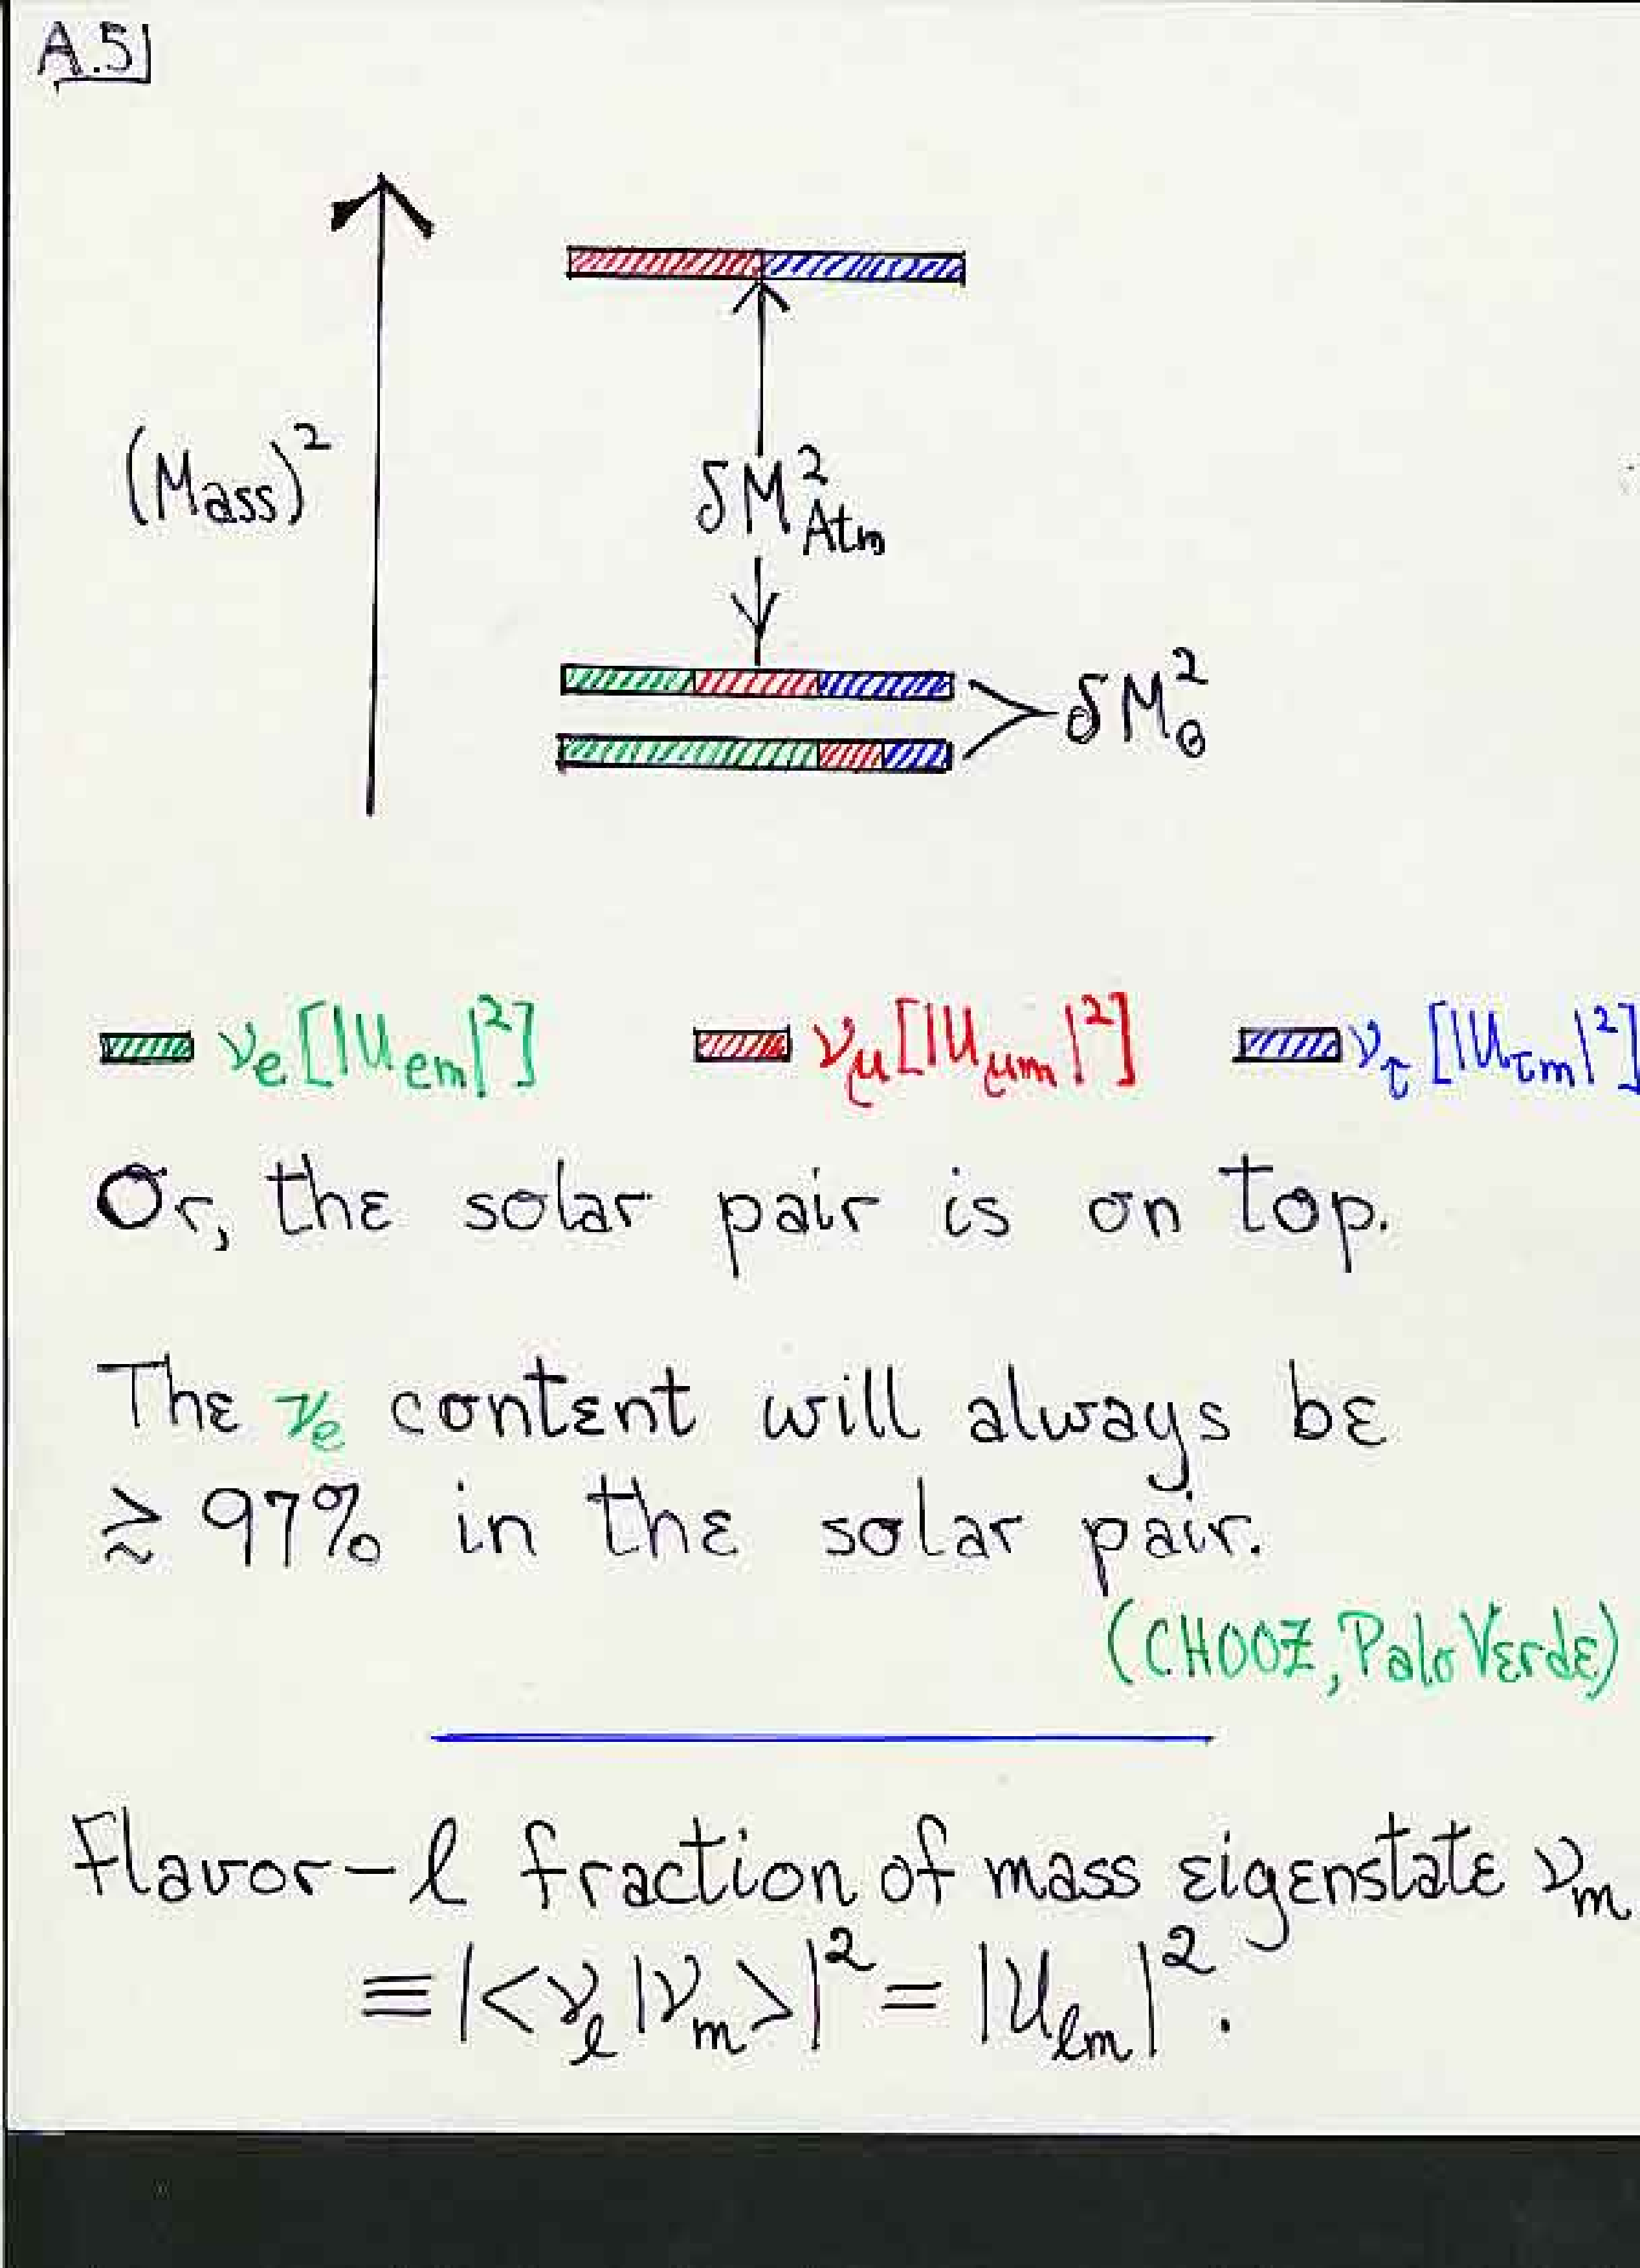 A.5
(Mass)²
δM²Atm
δM²⊙
νe [|Uem|²] νμ [|Uμm|²] ντ [|Uτm|²]
Or, the solar pair is on top.
The νe content will always be
≳ 97% in the solar pair.
(CHOOZ, Palo Verde)
Flavor-ℓ fraction of mass eigenstate νm
≡ |<νℓ|νm>|² = |Uℓm|².